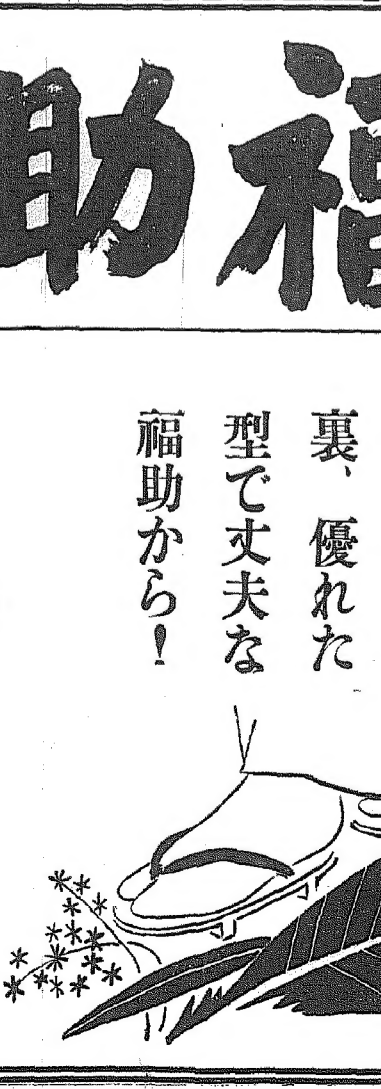 福助
裏、優れた
型で丈夫な
福助から!